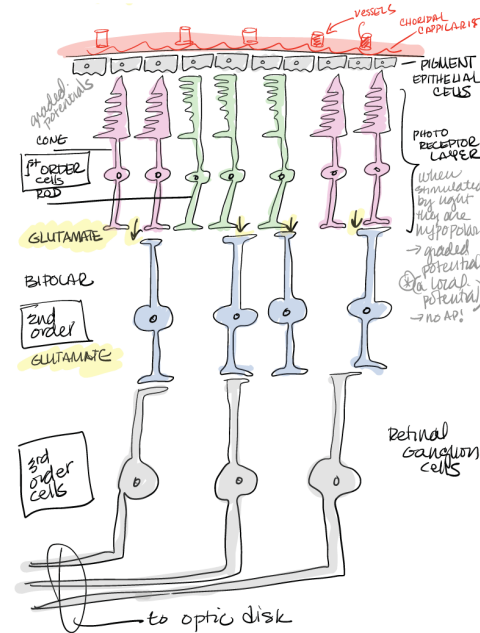 VESSELS
CHORIDAL
CAPPILARIS
PIGMENT
EPITHELIAL
CELLS
graded
potentials
CONE
1st ORDER
cells
ROD
PHOTO
RECEPTOR
LAYER
when
stimulated
by light
they are
hypopolar
→ graded
potential
* a local
potential
→ no AP!
GLUTAMATE
BIPOLAR
2nd
order
GLUTAMATE
3rd
order
cells
Retinal
Ganglion
cells
to optic disk